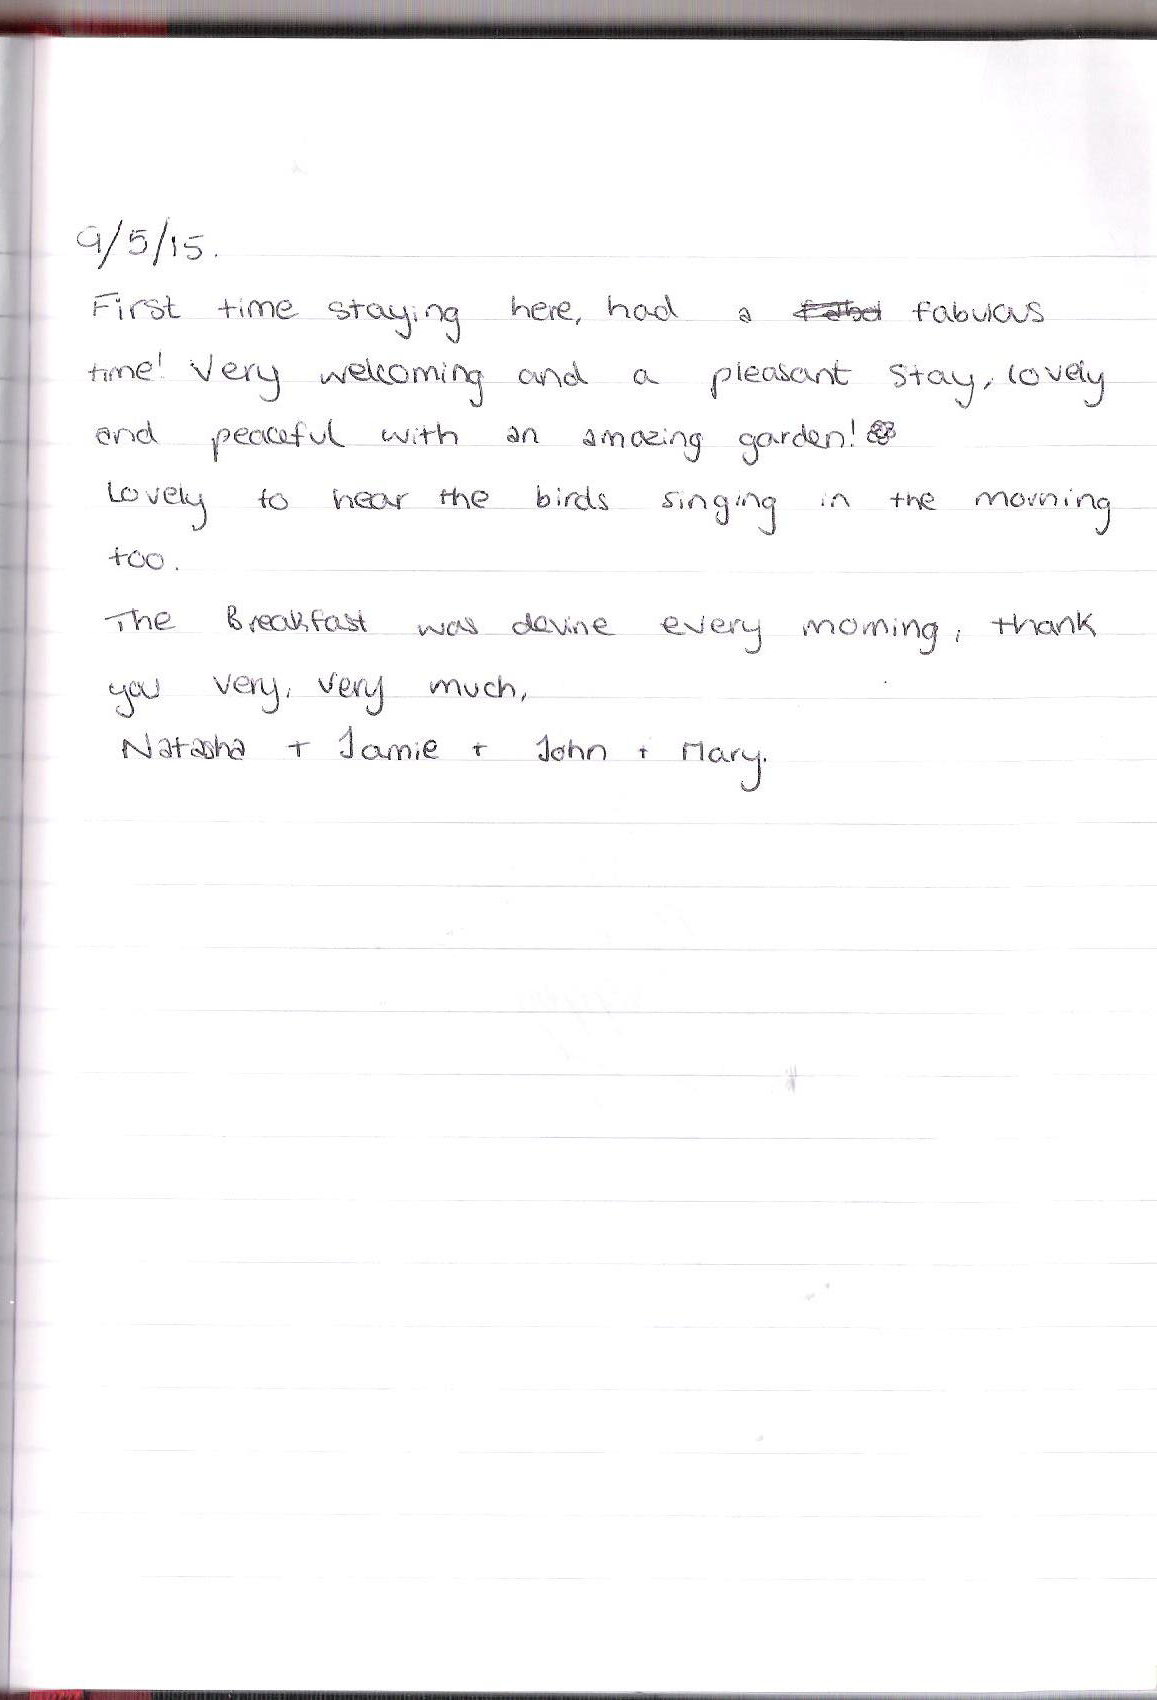 9/5/15.
First time staying here, had a fabulous
time! Very welcoming and a pleasant stay, lovely
and peaceful with an amazing garden!
Lovely to hear the birds singing in the morning
too.
The Breakfast was devine every morning, thank
you very, very much,
Natasha + Jamie + John + Mary.